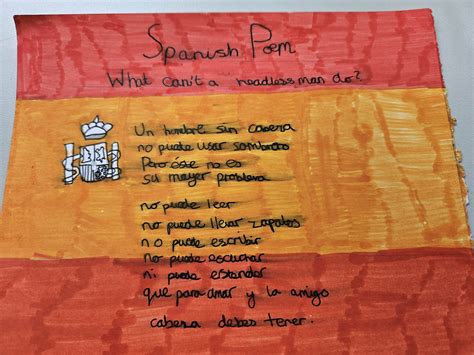 Spanish Poem
What can't a headless man do?
Un hombre sin cabeza
no puede usar sombrero
Pero éste no es
su mayer problema
no puede leer
no puede llevar zapatos
no puede escribir
no puede escuchar
ni puede estander
que para amar y la amigo
cabeza debes tener.